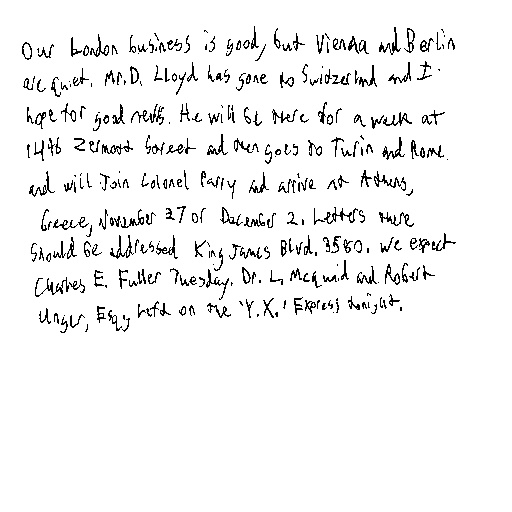 Our London business is good, but Vienna and Berlin
are quiet. Mr. D. Lloyd has gone to Switzerland and I
hope for good news. He will be there for a week at
1496 Zermott Street and then goes to Turin and Rome
and will join Colonel Parry and arrive at Athens,
Greece, November 27 or December 2. Letters there
should be addressed King James Blvd. 3580. We expect
Charles E. Fuller Tuesday. Dr. L. McQuaid and Robert
Unger, Esq., left on the 'Y.X.' Express tonight.